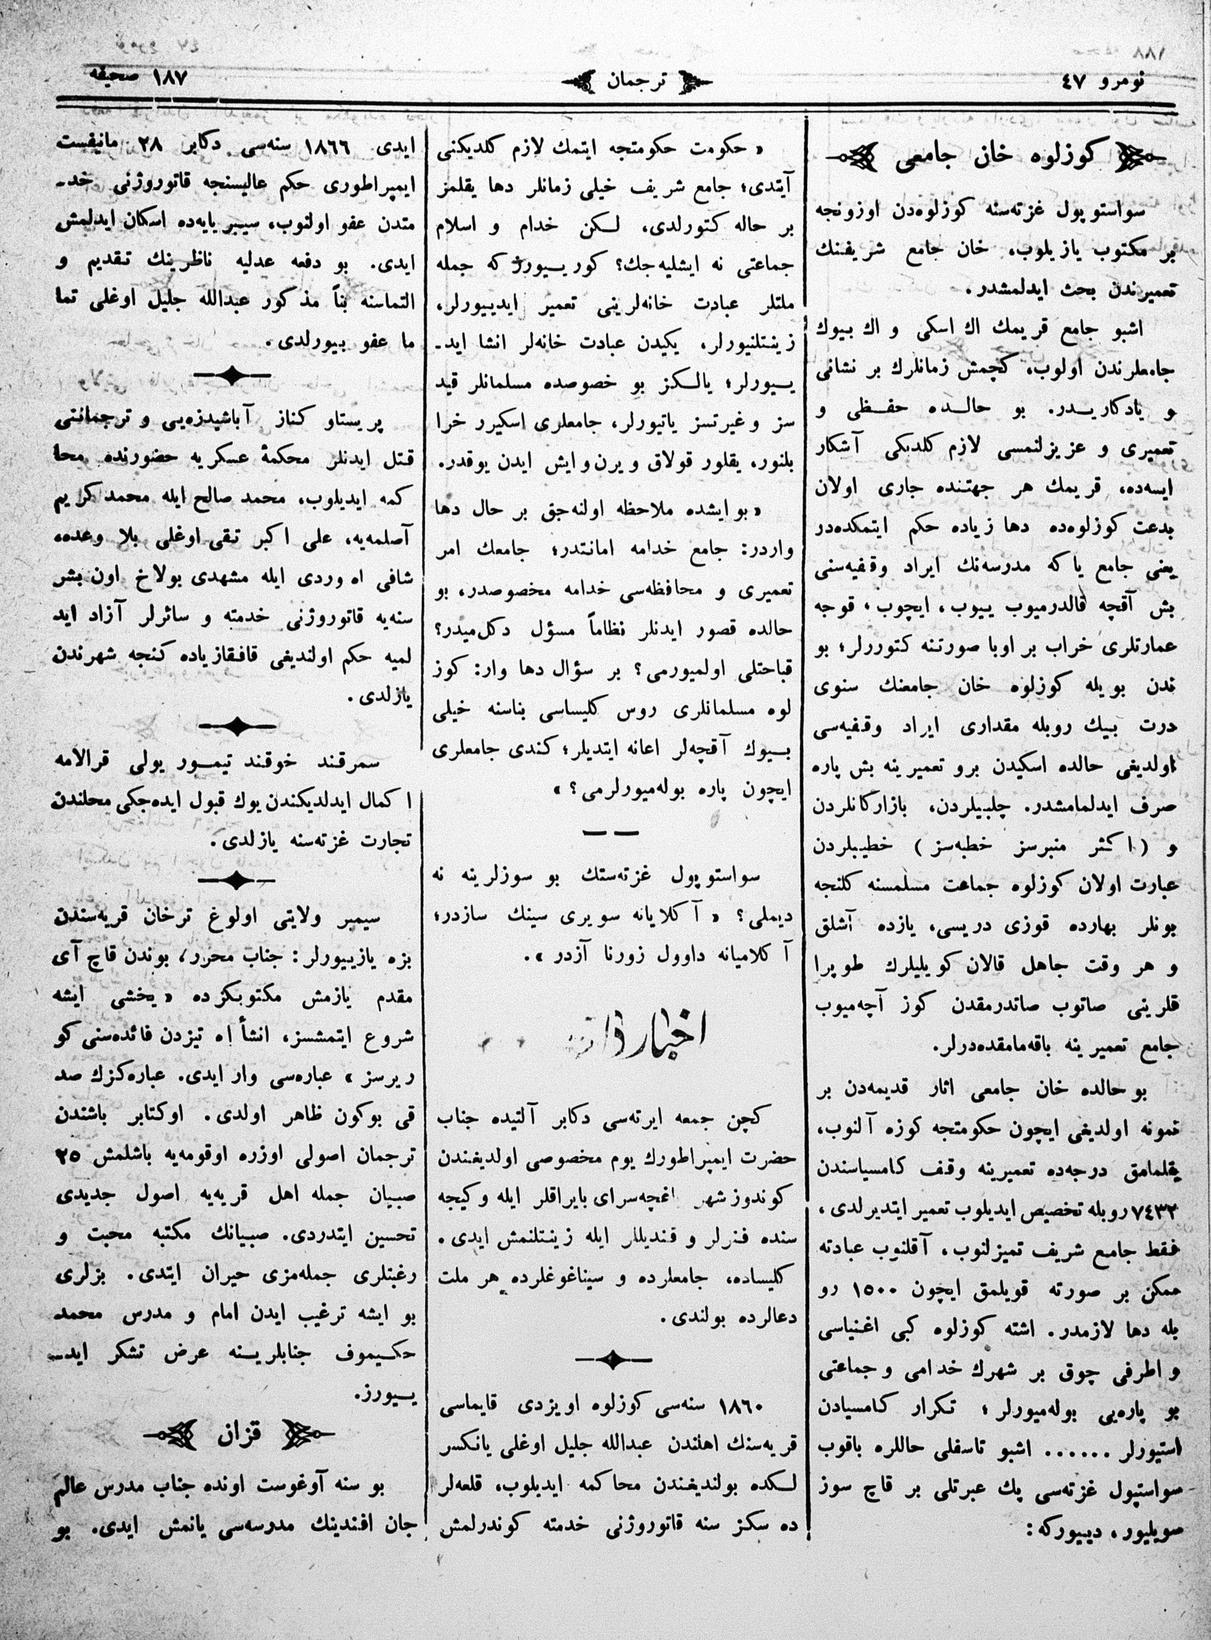 نومرو ٤٧
ترجمان
١٨٧ صحیفه
كوزلوه خان جامعی
سواستوپول غزته‌سنه كوزلوه‌دن اوزونجه
بر مكتوب یازیلوب، خان جامع شریفنك
تعمیرندن بحث ایدلمشدر.
اشبو جامع قریمك اك اسكی و اك بیوك
جامعلرندن اولوب، كچمش زمانلرك بر نشانی
و یادكاریدر. بو حالده حفظی و
تعمیری و عزیزلنمسی لازم كلدیكی آشكار
ایسه‌ده، قریمك هر جهتنده جاری اولان
بدعت كوزلوه‌ده دها زیاده حكم ایتمكده‌در
یعنی جامع یا كه مدرسه‌نك ایراد وقفیه‌سنی
بش آقچه قالدرمیوب ییوب، ایچوب، قوجه
عمارتلری خراب بر اوبا صورتنه كتوررلر؛ بو
ندن بویله كوزلوه خان جامعنك سنوی
درت بیك روبله مقداری ایراد وقفیه‌سی
اولدیغی حالده اسكیدن برو تعمیرینه بش پاره
صرف ایدلمامشدر. چلبیلردن، بازارگانلردن
و (اكثر منبرسز خطبه‌سز) خطیبلردن
عبارت اولان كوزلوه جماعت مسلمسنه كلنجه
بونلر بهارده قوزی دریسی، یازده آشلق
و هر وقت جاهل قالان كویلیلرك طوپرا
قلرینی صاتوب صاتدرمقدن كوز آچه‌میوب
جامع تعمیرینه باقه‌مامقده‌درلر.
بو حالده خان جامعی اثار قدیمه‌دن بر
نمونه اولدیغی ایچون حكومتجه كوزه آلنوب،
یقلمامق درجه‌ده تعمیرینه وقف كامسیاسندن
٧٤٣٢ روبله تخصیص ایدیلوب تعمیر ایتدیرلدی،
فقط جامع شریف تمیزلنوب، آقلنوب عبادته
ممكن بر صورته قویلمق ایچون ١٥٠٠ رو
بله دها لازمدر. اشته كوزلوه كبی اغنیاسی
و اطرفی چوق بر شهرك خدامی و جماعتی
بو پاره‌یی بوله‌میورلر؛ تكرار كامسیادن
استیورلر ...... اشبو تاسفلی حاللره باقوب
سواستپول غزته‌سی پك عبرتلی بر قاچ سوز
سویلیور، دییوركه:
« حكومت حكومتجه ایتمك لازم كلدیكنی
آیتدی؛ جامع شریف خیلی زمانلر دها یقلمز
بر حاله كتورلدی، لكن خدام و اسلام
جماعتی نه ایشلیه‌جك؟ كوریـیورز كه جمله
ملتلر عبادت خانه‌لرینی تعمیر ایدییورلر،
زینتلنیورلر، یكیدن عبادت خانه‌لر انشا ایدـ
یـیورلر؛ یالكز بو خصوصده مسلمانلر قید
سز و غیرتسز یاتیورلر، جامعلری اسكیرر خرا
بلنور، یقلور قولاق ویرن و ایش ایدن یوقدر.
« بو ایشده ملاحظه اولنه‌جق بر حال دها
واردر: جامع خدامه امانتدر؛ جامعك امر
تعمیری و محافظه‌سی خدامه مخصوصدر، بو
حالده قصور ایدنلر نظاماً مسؤل دكل‌میدر؟
قباحتلی اولمیورمی؟ بر سؤال دها وار: كوز
لوه مسلمانلری روس كلیساسی بناسنه خیلی
بـیوك آقچه‌لر اعانه ایتدیلر؛ كندی جامعلری
ایچون پاره بوله‌میورلرمی؟ »
سواستوپول غزته‌ستك بو سوزلرینه نه
دیملی؟ « آكلایانه سویری سینك سازدر؛
آكلامیانه داوول زورنا آزدر ».
اخبار
كچن جمعه ایرته‌سی دكابر آلتیده جناب
حضرت ایمپراطورك یوم مخصوصی اولدیغندن
كوندوز شهر اغچه‌سرای بایراقلر ایله و كیجه
سنده فنرلر و قندیللر ایله زینتلنمش ایدی.
كلیساده، جامعلرده و سیناغوغلرده هر ملت
دعالرده بولندی.
١٨٦٠ سنه‌سی كوزلوه اویزدی قایماسی
قریه‌سنك اهلندن عبدالله جلیل اوغلی یانكسر
لـكده بولندیغندن محاكمه ایدیلوب، قلعه‌لر
ده سكز سنه قاتوروژنی خدمته كوندرلمش
ایدی ١٨٦٦ سنه‌سی دكابر ٢٨ مانیفست
ایمپراطوری حكم عالیسنجه قاتوروژنی خدـ
متدن عفو اولنوب، سیبریایه‌ده اسكان ایدلمش
ایدی. بو دفعه عدلیه ناظرینك تقدیم و
التماسنه بنأً مذكور عبدالله جلیل اوغلی تما
ما عفو بیورلدی.
پریستاو كناز آباشیدزه‌یی و ترجمانتی
قتل ایدنلر محكمهٔ عسكریه حضورنده محا
كمه ایدیلوب، محمد صالح ایله محمد كریم
آصلمه‌یه، علی اكبر تقی اوغلی بلا وعده،
شافی اه وردی ایله مشهدی بولاخ اون بشر
سنه‌یه قاتوروژنی خدمته و سائرلر آزاد اید
لمیه حكم اولندیغی قافقازیاده كنجه شهرندن
یازلدی.
سمرقند خوقند تیمـور یولی قرالامه
اكمال ایدلدیكندن یوك قبول ایده‌جكی محلندن
تجارت غزته‌سنه یازلدی.
سیمبر ولایتی اولوغ ترخان قریه‌سندن
بزه یازییورلر: جناب محرر، بوندن قاچ آی
مقدم یازمش مكتوبكزده « یخشی ایشه
شروع ایتمشسز، انشأ اه تیزدن فائده‌سنی كو
ریرسز » عباره‌سی وار ایدی. عباره‌كزك صد
قی بوكون ظاهر اولدی. اوكتابر باشندن
ترجمان اصولی اوزره اوقومه‌یه باشلمش ٢٥
صبیان جمله اهل قریه‌یه اصول جدیدی
تحسین ایتدردی. صبیانك مكتبه محبت و
رغبتلری جمله‌مزی حیران ایتدی. بزلری
بو ایشه ترغیب ایدن امام و مدرس محمد
حكـیموف جنابلریـنه عرض تشكر ایدـ
یـیورز.
قزان
بو سنه آوغوست اونده جناب مدرس عالم
جان افندینك مدرسه‌سی یانمش ایدی. بو